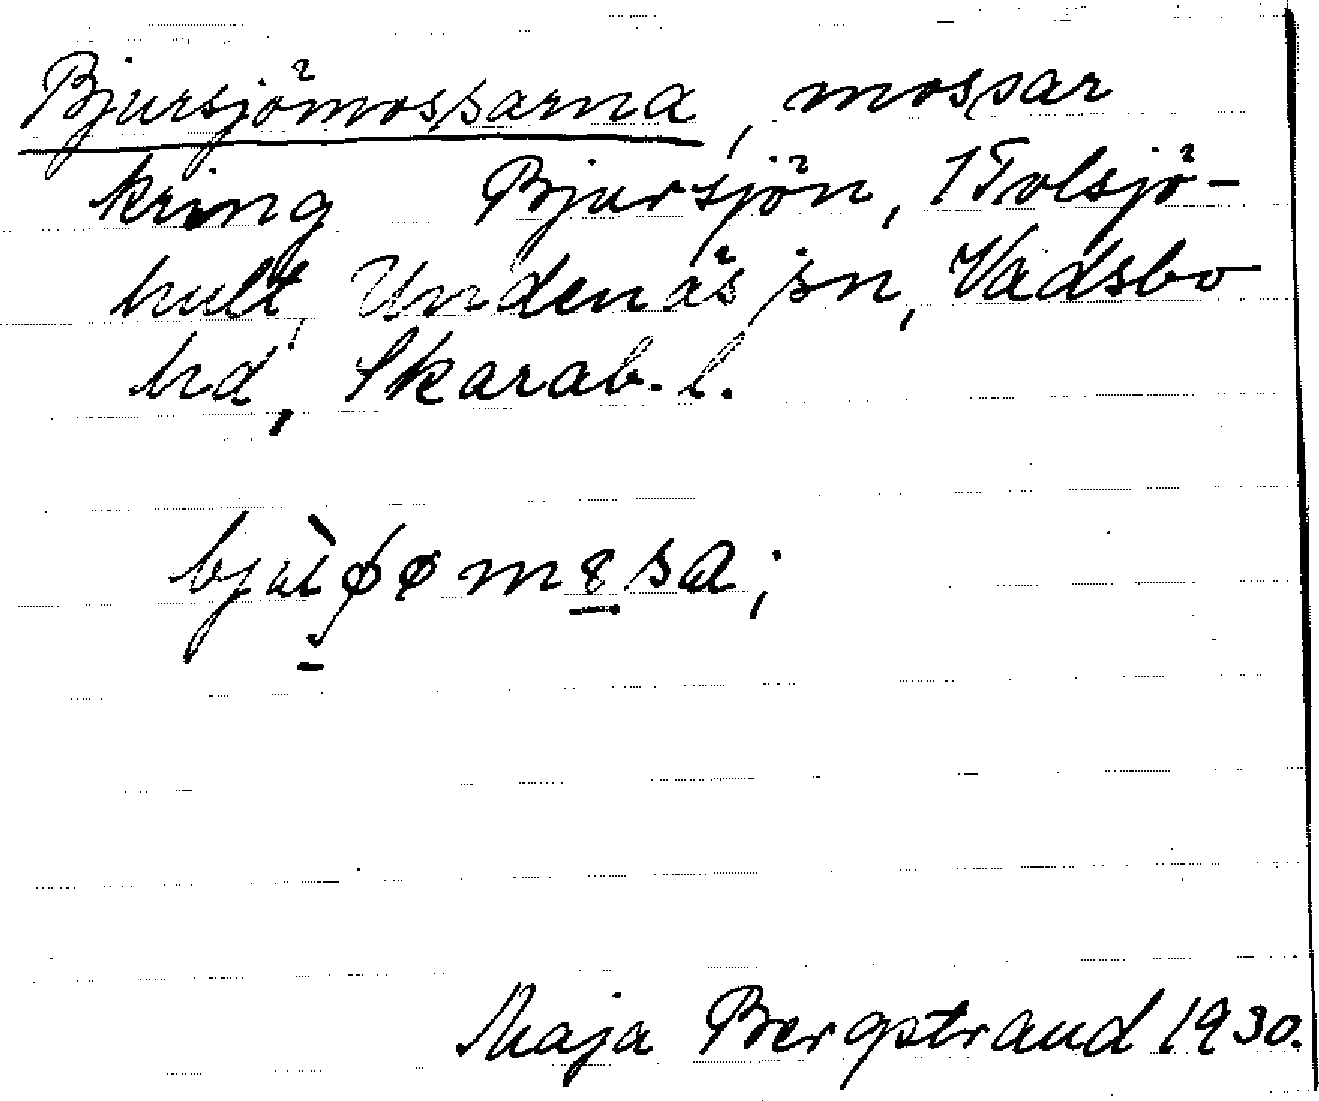 Bjursjömossarna, mossar
kring Bjursjön, 1 Tolsjö-
hult, Undenäs sn, Vadsbo
hd, Skarab. l.
Maja Bergstrand 1930.